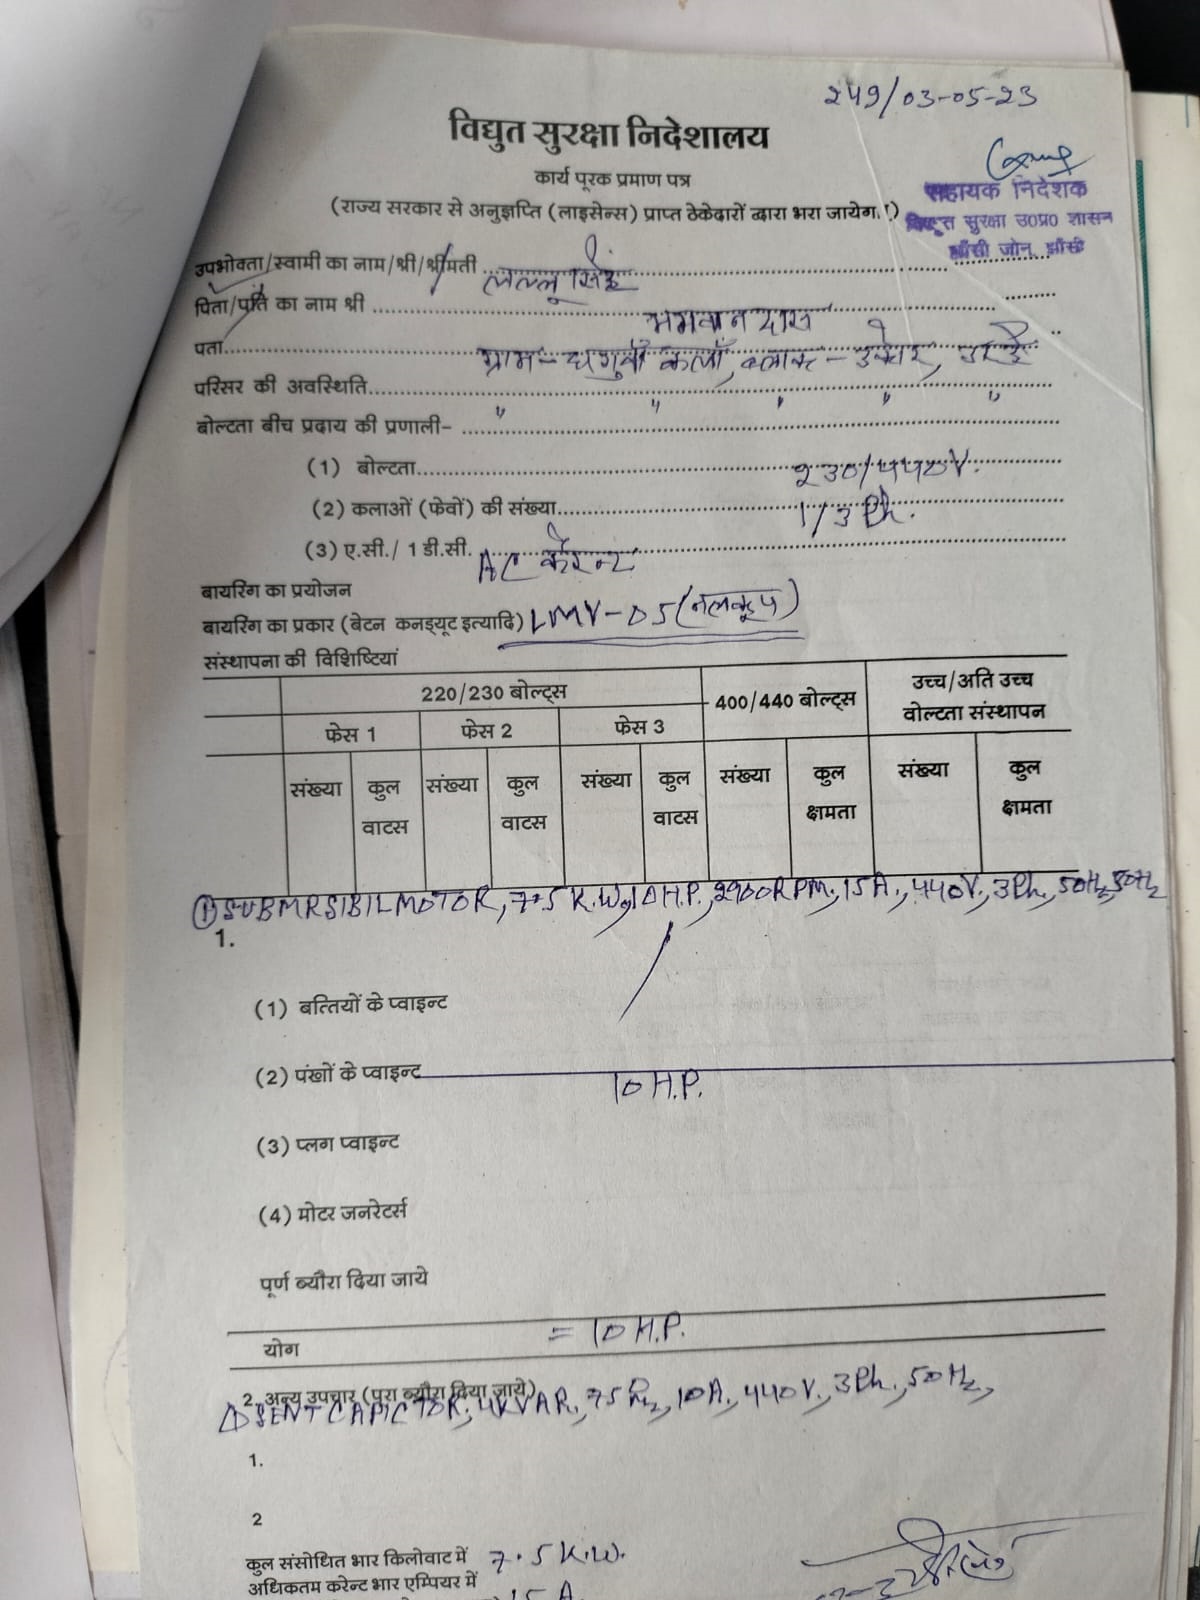 249/03-05-23
विद्युत सुरक्षा निदेशालय
कार्य पूरक प्रमाण पत्र
(राज्य सरकार से अनुज्ञप्ति (लाइसेन्स) प्राप्त ठेकेदारों द्वारा भरा जायेगा।)
सहायक निदेशक
विद्युत सुरक्षा उ०प्र० शासन
झाँसी जोन, झाँसी
उपभोक्ता/स्वामी का नाम/श्री/श्रीमती लल्लू सिंह
पिता/पति का नाम श्री भगवान दास
पता ग्राम- कलाँ, ब्लाक-
परिसर की अवस्थिति " " " " "
बोल्टता बीच प्रदाय की प्रणाली-
(1) बोल्टता 230/440V.
(2) कलाओं (फेवों) की संख्या 1/3 Ph.
(3) ए.सी./ 1 डी.सी. AC करेन्ट
बायरिंग का प्रयोजन
बायरिंग का प्रकार (बेटन कनड्यूट इत्यादि) LMV-05 (नलकूप)
संस्थापना की विशिष्टियां
220/230 बोल्ट्स 400/440 बोल्ट्स उच्च/अति उच्च वोल्टता संस्थापन
फेस 1 फेस 2 फेस 3
संख्या कुल वाटस संख्या कुल वाटस संख्या कुल वाटस संख्या कुल क्षामता संख्या कुल क्षामता
① SUBMRSIBIL MOTOR, 7.5 K.W, 10 H.P., 2900 RPM, 15A., 440V., 3Ph., 50Hz, 50Hz
1.
(1) बत्तियों के प्वाइन्ट
(2) पंखों के प्वाइन्ट
10 H.P.
(3) प्लग प्वाइन्ट
(4) मोटर जनरेटर्स
पूर्ण ब्यौरा दिया जाये
योग = 10 H.P.
2. अन्य उपचार (पूरा ब्यौरा दिया जाये)
SENT CAPICTOR, 4KVAR, 10A., 440V., 3Ph., 50Hz,
1.
2
कुल संसोधित भार किलोवाट में 7.5 K.W.
अधिकतम करेन्ट भार एम्पियर में 15 A